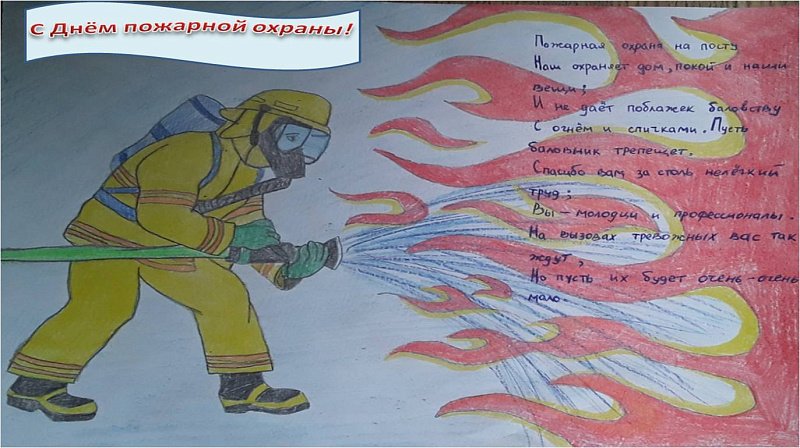 С Днём пожарной охраны!
Пожарная охрана на посту
Наш охраняет дом, покой и наши
вещи;
И не даёт поблажек баловству
С огнём и спичками. Пусть
баловник трепещет.
Спасбо вам за столь нелёгкий
труд;
Вы – молодцы и профессионалы.
На вызовах тревожных вас так
ждут,
Но пусть их будет очень-очень
мало.